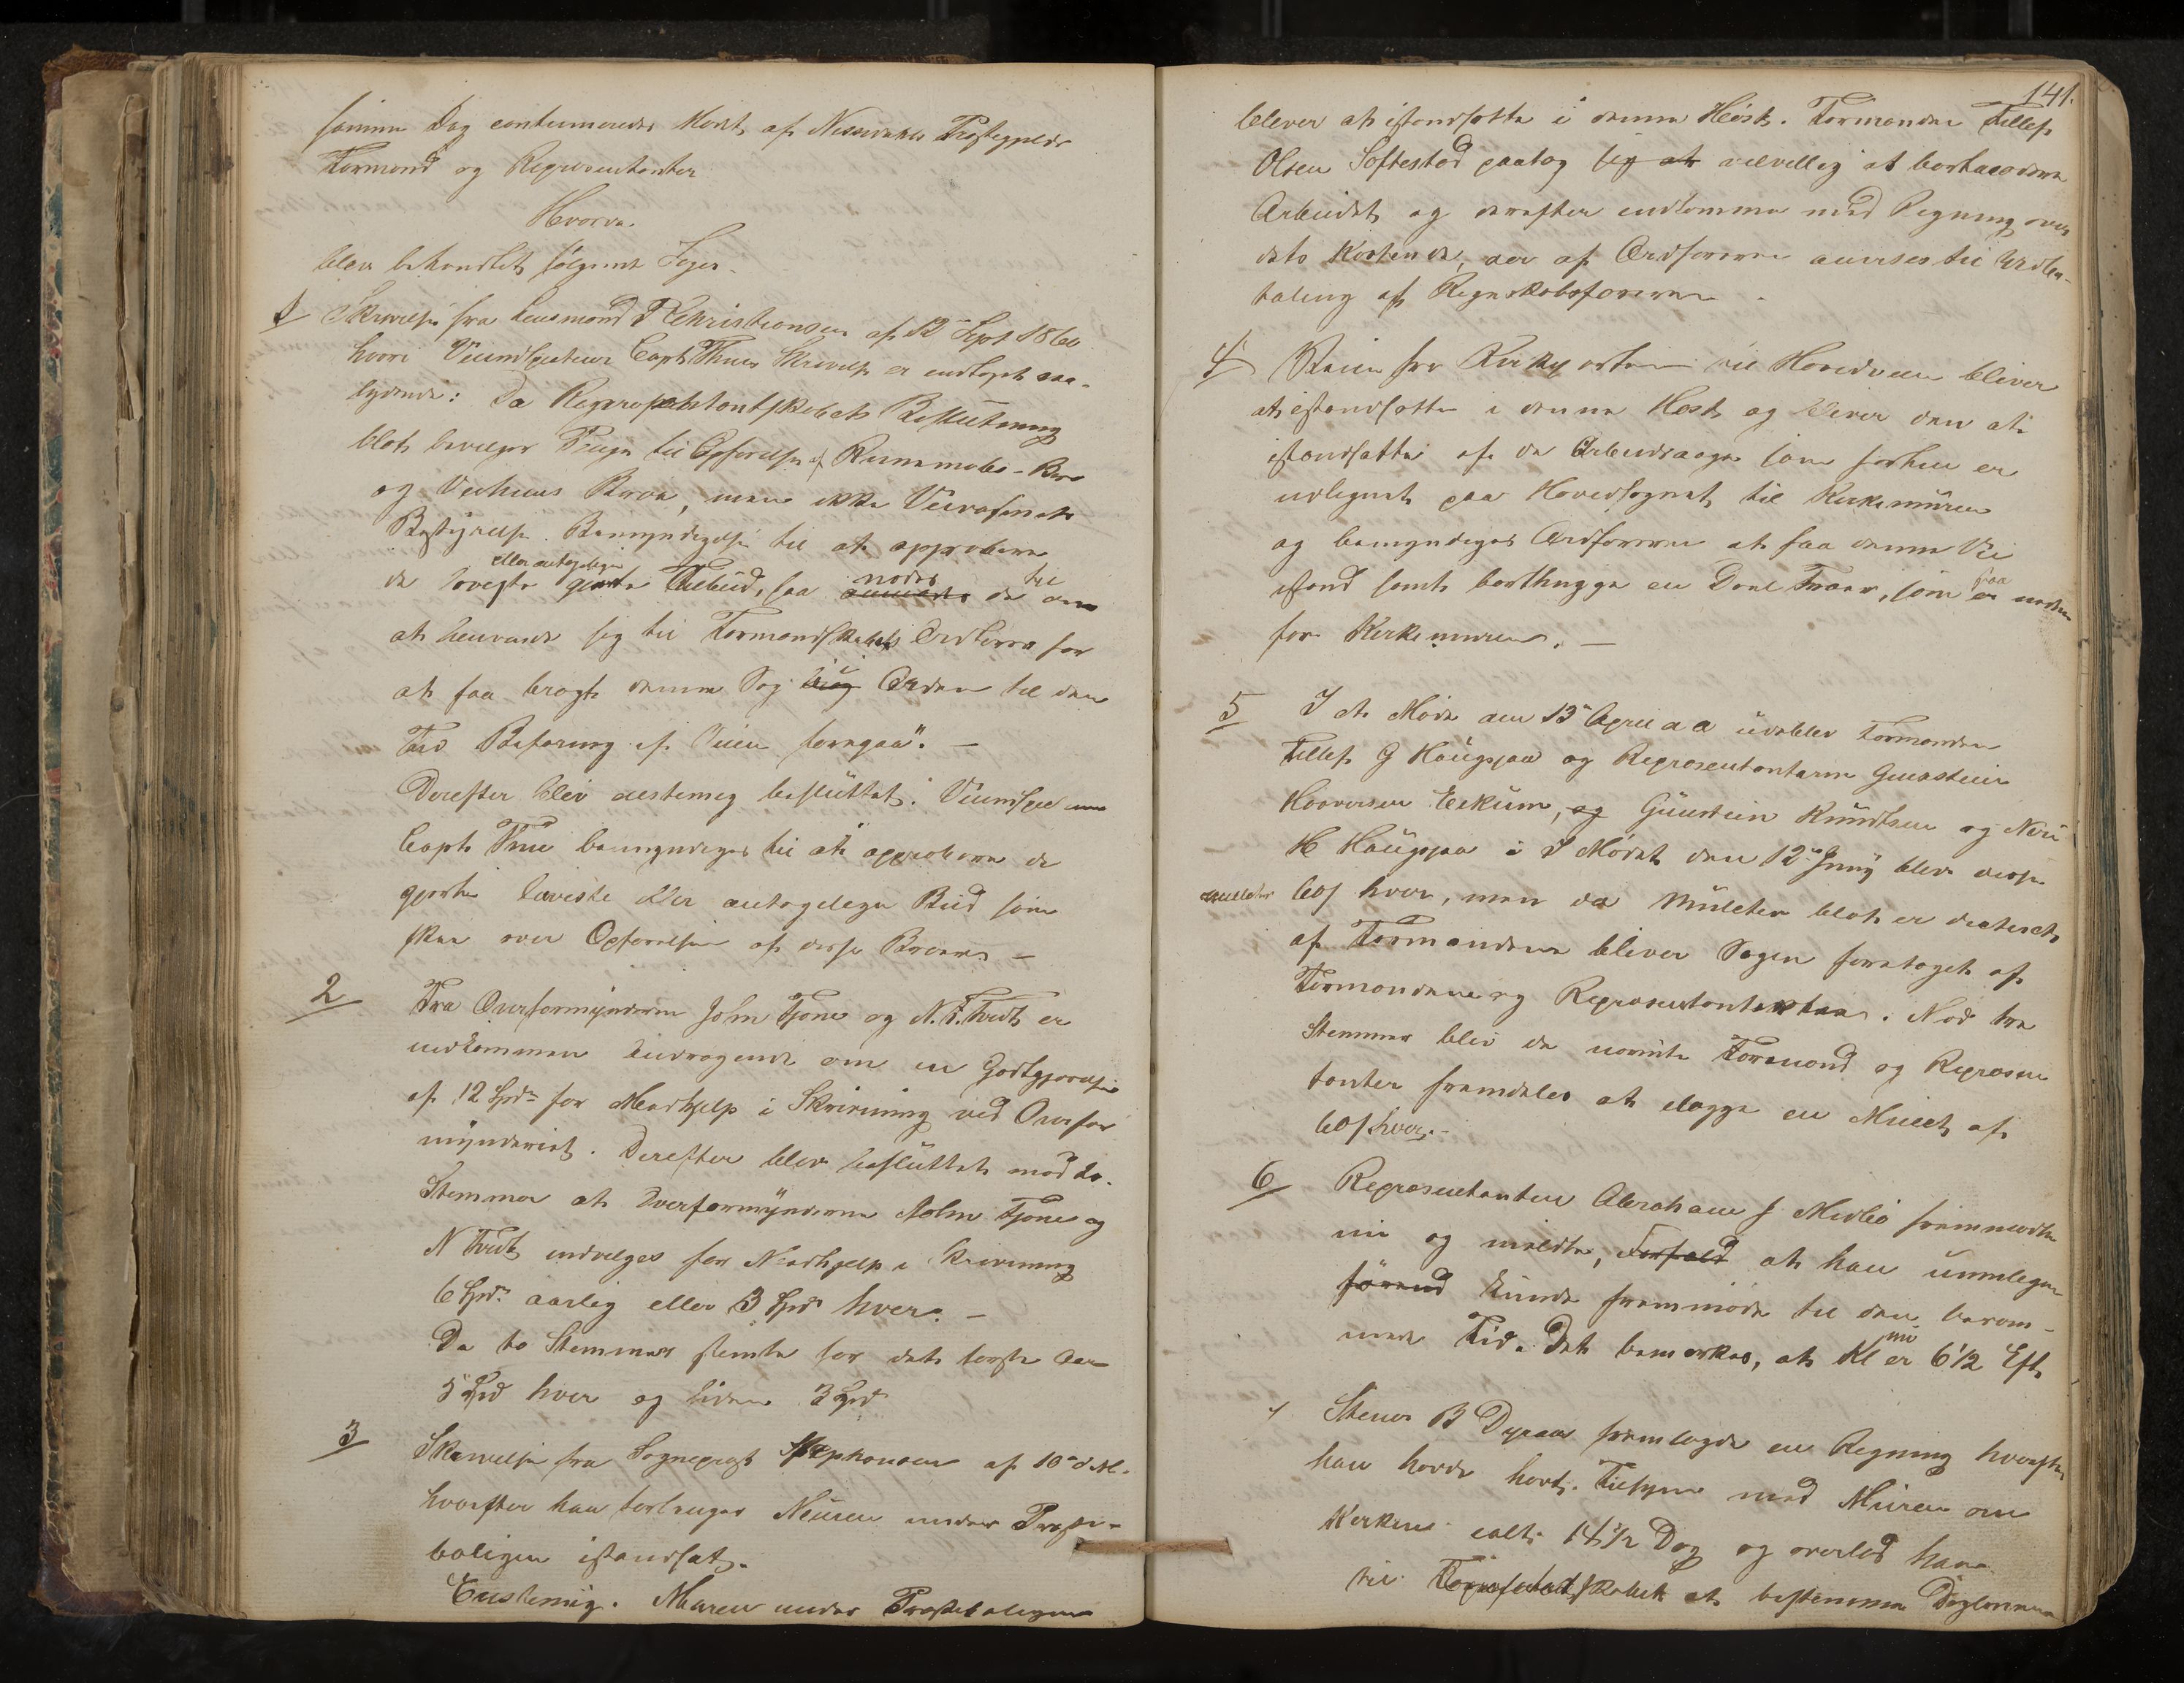 samme Dag contuneredes Mødet af Nissedahls Præstegjelds
Formænd og Repræsentanter
Hvorved
blev behandlet følgende Sager.
1 Skrivelse fra Lensmand Christiansen af 12 Sept 1860
hvori Veiinspecteur Capt Thues Skrivelse er indtaget saa-
lydende: Da Repræsentantskabets Beslutning
blot bevilger Penge til Opførelse af
og Veihuus Broen, men ikke Veivæsenets
Bestyrelse Bemyndigelse til at approbere
eller antagelige nødes til
de laveste gjorte Tilbud, saa de
at henvende sig til Formandskabets Ordfører for
at faa bragt denne Sag i Orden til den
Tid Befaring af Veien foregaar". —
Derefter blev eenstemig besluttet: Veiinspecteur
Capt Thue bemyndiges til at approbere de
gjorte laveste eller antagelige Bud som
skeer over Opførelsen af disse Broer —
2 Fra Overformynderne John Fjone og N. T. Tvedt er
indkommen Andragende om en Godtgjørelse
af 12 Spd for Medhjelp i Skrivning ved Overfor
mynderiet. Derefter blev besluttet med
Stemmer at Overformynderne John Fjone og
N Tvedt indvilges for Medhjelp i Skrivning
6 Spd. aarlig eller 3 Spd hver. —
Da to Stemmer stemte for det første Aar
5 Spd hver og siden 3 Spd
3 Skrivelse fra Sogneprest Stephansen af 10 d M.
hvorefter han forlanger Muren under Præste-
boligen istandsat.
Enstemig. Muren under Præsteboligen
141.
bliver at istandsætte i denne Høst. Formanden Tellef
Olsen Søftestad paatog sig velvillig at bortaccordere
Arbeidet og derefter indkomme med Regning over
dets Kostende, der af Ordføreren anvises til Udbe-
taling af Regnskabsføreren.
4 Veien fra Kirken til Hovedveien bliver
at istandsætte i denne Høst og bliver den at
istandsætte af de Arbeidsdage som forhen er
udlignet paa Hovedsognet til Kirkemuren
og bemyndiges Ordføreren at faa denne Vei
istand samt borthugge en Deel Træer, som er neden
for Kirkemuren. —
5 I et Møde den 13 April a a udeblev Formanden
Tellef G Haugsjaa og Repræsentanterne Gunstein
Haaversen Eekum, og Gunstein Knudsen og Nri
H Haugsjaa i Mødet den 12 Juny blev disse
mulcter 60 s hver, men da Mulcten blot er dicteret
af Formændene bliver Sagen foretaget af
Formændene og Repræsentanterne. Med tre
Stemmer blev de nævnte Formænd og Repræsen
tanter fremdeles at ilægge en Mulct af
60 s hver. -
6 Repræsentanten Abraham J Midbø fremmødte
nu og meldte, Forfald at han umulig
førend kunde fremmøde til den beram-
mede Tid. Det bemærkes, at Kl nu er 6 1/2 Eft.
7 Stener B Dyraa fremlagde en Regning hvorefter
han havde havt Tilsyn med Muren om
Kirken ialt 14 1/2 Dag og overlod han
til Formandskabet at bestemme Daglønnen